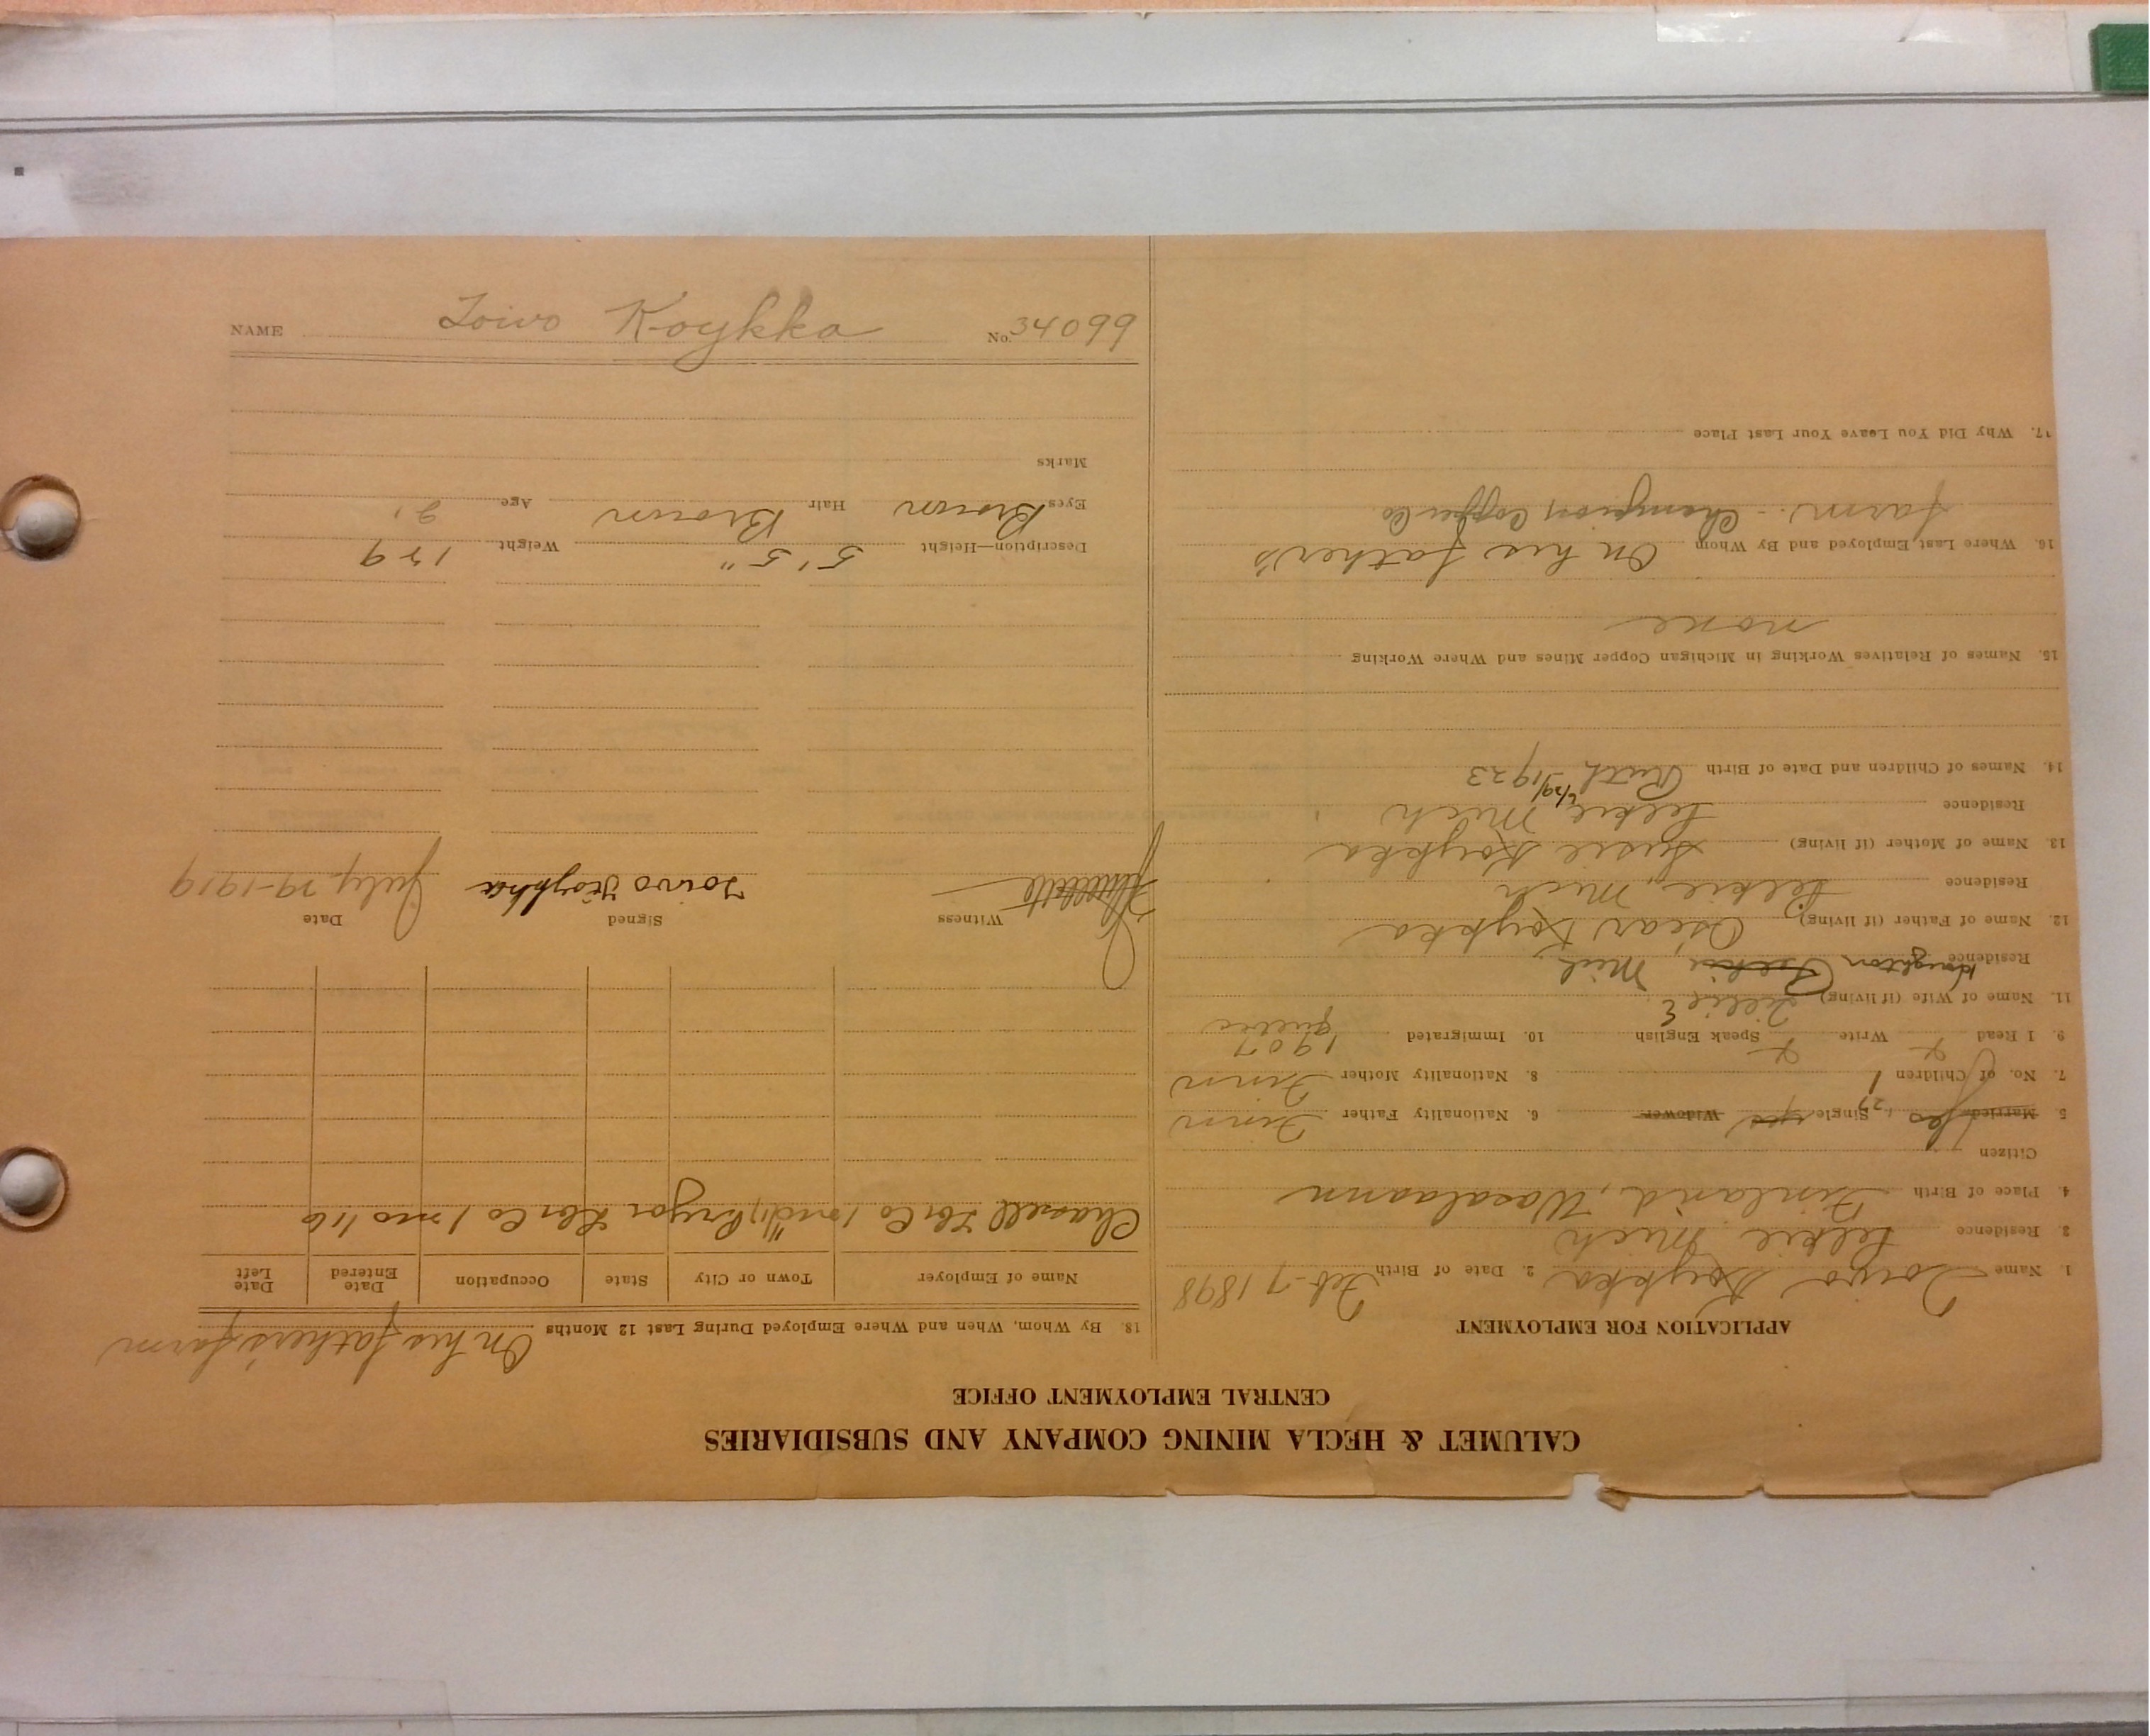 CALUMET & HECLA MINING COMPANY AND SUBSIDIARIES
CENTRAL EMPLOYMENT OFFICE
APPLICATION FOR EMPLOYMENT
1. Name Toivo Koykka 2. Date of Birth Feb-7 1898
3. Residence Pelkie Mich
4. Place of Birth Finland, Wasalaann
Citizen
5. Married Yes Single yes Widower 6. Nationality Father Finn
7. No. of Children 1 8. Nationality Mother Finn
9. I Read Write x Speak English x 10. Immigrated 1907
11. Name of Wife (if living) Lillie
Residence Houghton Pelkie Mich,
12. Name of Father (if living) Oscar Koykka
Residence Pelkie, Mich
13. Name of Mother (if living) Susie Koykka
Residence Pelkie, Mich
14. Names of Children and Date of Birth Ruth 6/29/1923
15. Names of Relatives Working in Michigan Copper Mines and Where Working
none
16. Where Last Employed and By Whom On his father's
farm. - Champion Copper Co
17. Why Did You Leave Your Last Place
18. By Whom, When and Where Employed During Last 12 Months On his father's farm
Name of Employer Town or City State Occupation Date Entered Date Left
Chasell Lbr Co 1 Pryor Lbr Co 1 mo /16
Witness Signed Date
Toivo Koykka July-29-1919
Description—Height 5' 5" Weight 159
Eyes Brown Hair Brown Age 21
Marks
NAME Toivo Koykka No. 34099